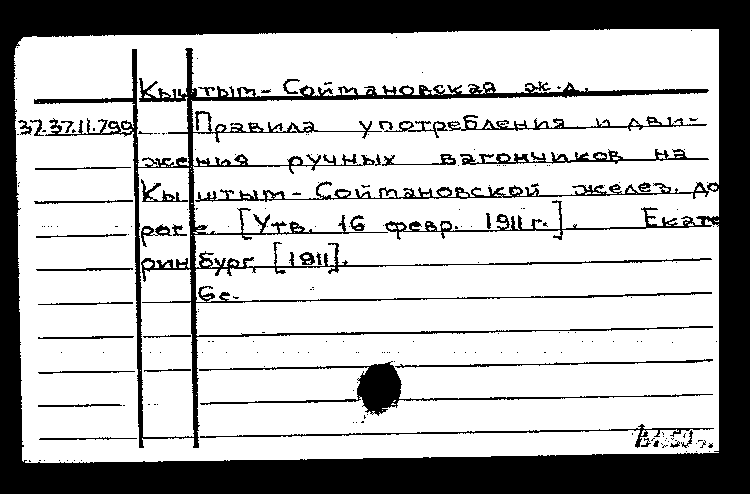 Кыштым-Соймановская ж.д.
37.37.11.799. Правила употребления и дви-
жения ручных вагончиков на
Кыштым-Соймановской желез. до
роге. [Утв. 16 февр. 1911 г.]. Екате
ринбург, [1911].
6 с.